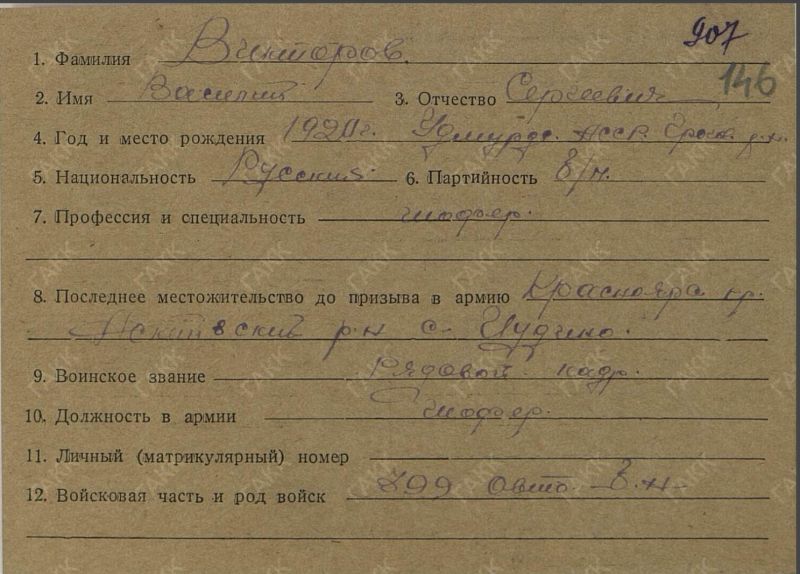 907
146
1. Фамилия Викторов.
2. Имя Василий 3. Отчество Сергеевич
4. Год и место рождения 1920 г. Удмурдс. АССР.
5. Национальность Русский. 6. Партийность б/п.
7. Профессия и специальность шофер.
8. Последнее местожительство до призыва в армию Красноярс. кр.
р-н с.
9. Воинское звание Рядовой кадр.
10. Должность в армии Шофер.
11. Личный (матрикулярный) номер
12. Войсковая часть и род войск 299 Авто.